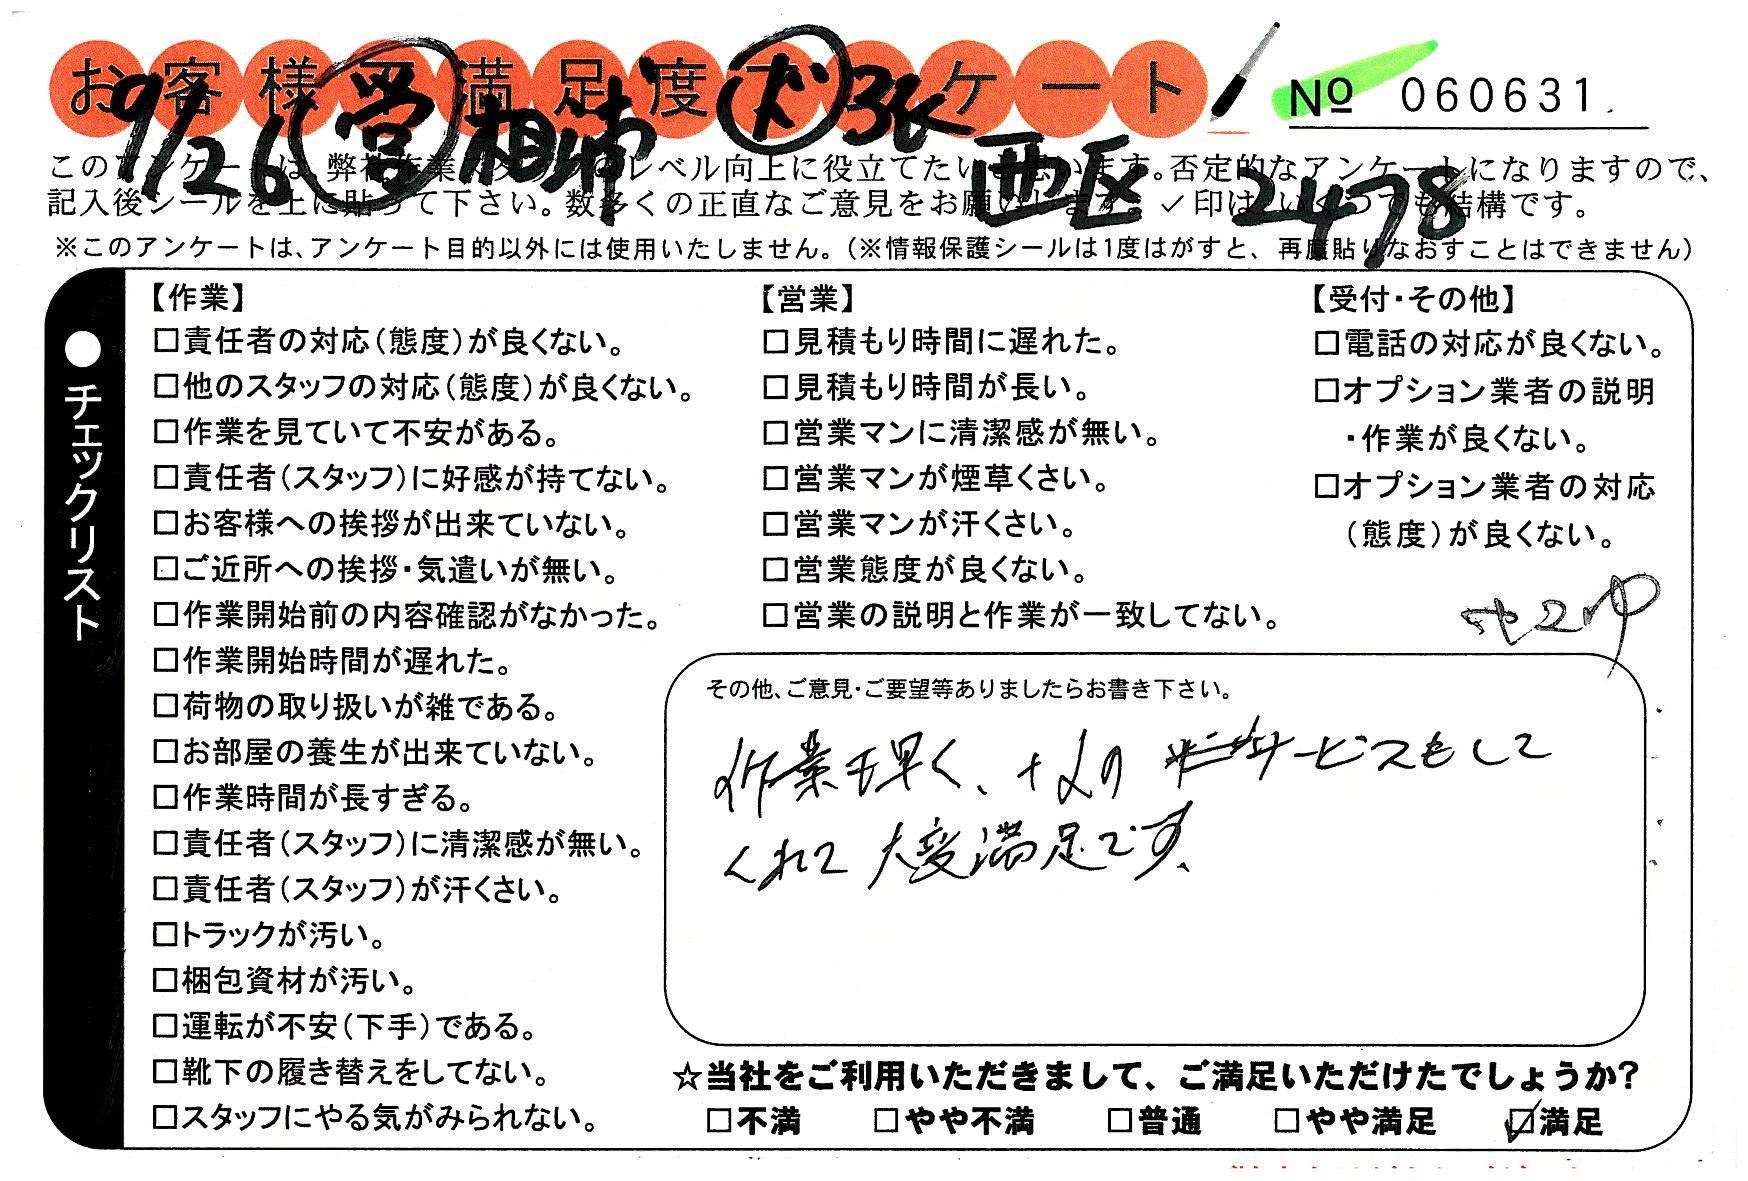 お客様不満足度アンケート
No 060631
9/26 営 相浦 ド 3K
西区 2478
このアンケートは、弊社作業スタッフのレベル向上に役立てたいと思います。否定的なアンケートになりますので、
記入後シールを上に貼って下さい。数多くの正直なご意見をお願いします。✓印はいくつでも結構です。
※このアンケートは、アンケート目的以外には使用いたしません。(※情報保護シールは1度はがすと、再度貼りなおすことはできません)
●チェックリスト
【作業】
□責任者の対応(態度)が良くない。
□他のスタッフの対応(態度)が良くない。
□作業を見ていて不安がある。
□責任者(スタッフ)に好感が持てない。
□お客様への挨拶が出来ていない。
□ご近所への挨拶・気遣いが無い。
□作業開始前の内容確認がなかった。
□作業開始時間が遅れた。
□荷物の取り扱いが雑である。
□お部屋の養生が出来ていない。
□作業時間が長すぎる。
□責任者(スタッフ)に清潔感が無い。
□責任者(スタッフ)が汗くさい。
□トラックが汚い。
□梱包資材が汚い。
□運転が不安(下手)である。
□靴下の履き替えをしてない。
□スタッフにやる気がみられない。
【営業】
□見積もり時間に遅れた。
□見積もり時間が長い。
□営業マンに清潔感が無い。
□営業マンが煙草くさい。
□営業マンが汗くさい。
□営業態度が良くない。
□営業の説明と作業が一致してない。
【受付・その他】
□電話の対応が良くない。
□オプション業者の説明
・作業が良くない。
□オプション業者の対応
(態度)が良くない。
その他、ご意見・ご要望等ありましたらお書き下さい。
作業も早く、+αの サービスもして
くれて大変満足です。
☆当社をご利用いただきまして、ご満足いただけたでしょうか?
□不満 □やや不満 □普通 □やや満足 ☑満足